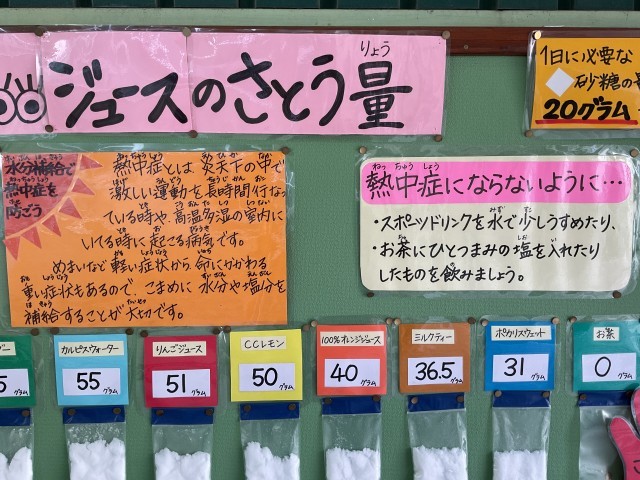 ジュースのさとう量
りょう
1日に必要な
砂糖の
20グラム
水分補給で
熱中症を
防ごう
熱中症とは 炎天下の中で
激しい運動を長時間行なっ
ている時や、高温多湿の室内に
いる時に起こる病気です。
めまいなど軽い症状から、命にかかわる
重い症状もあるので、こまめに 水分や塩分を
補給することが 大切です。
ねっちゅうしょう
熱中症にならないように…
・スポーツドリンクを水で少しうすめたり、
・お茶にひとつまみの塩を入れたり
したものを飲みましょう。
カルピスウォーター
55
グラム
りんごジュース
51
グラム
CCレモン
50
グラム
100%オレンジジュース
40
グラム
ミルクティー
36.5
グラム
ポカリスウェット
31
グラム
お茶
0
グラム